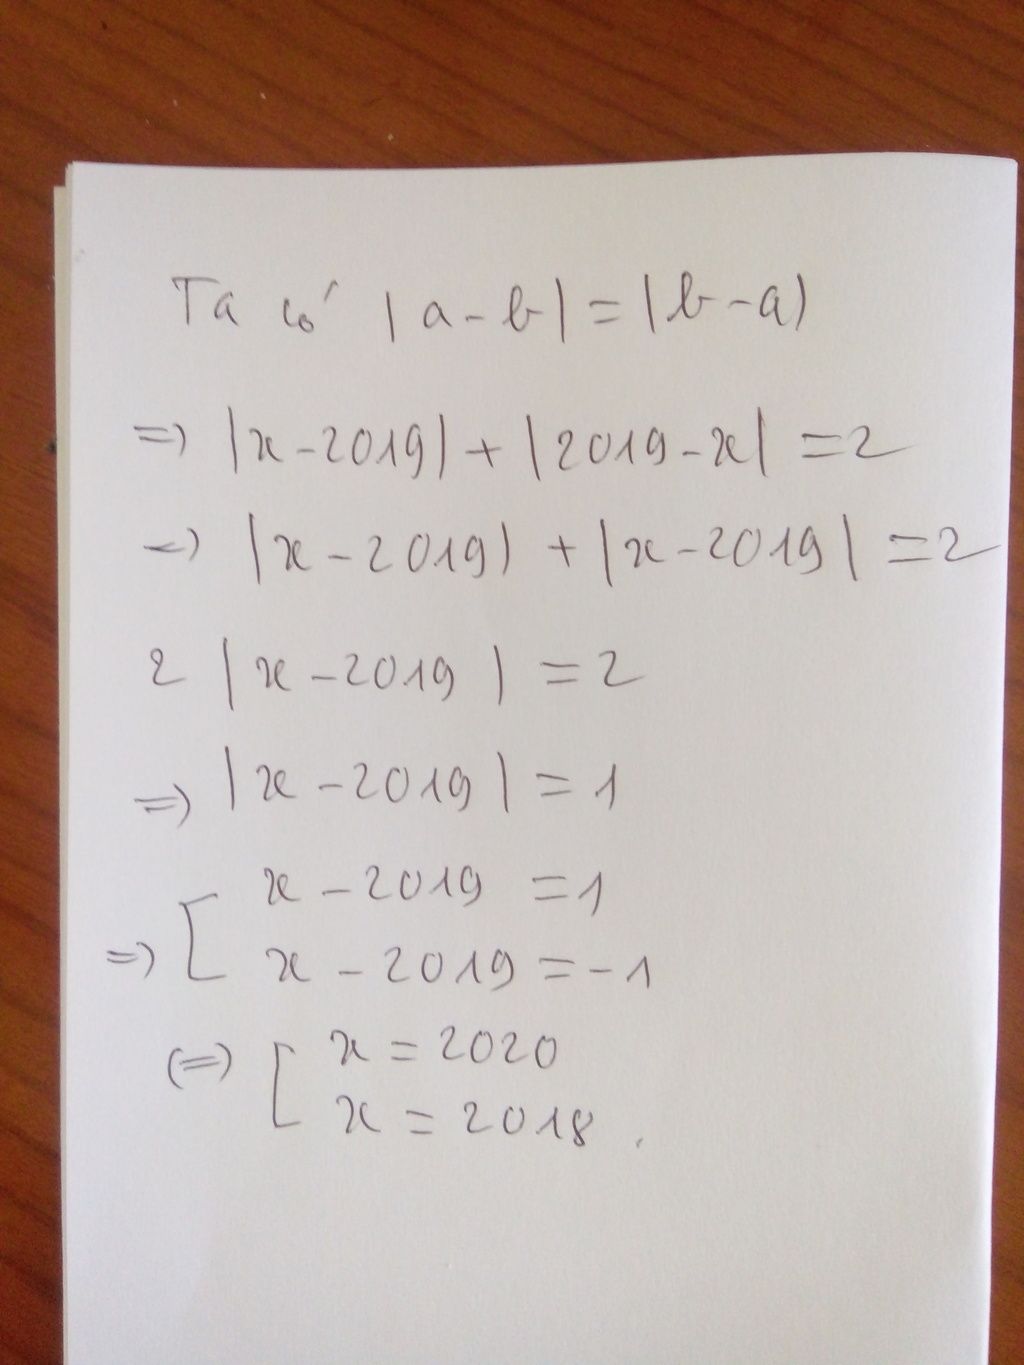 Ta có |a-b|=|b-a)
=> |x-2019|+|2019-x|=2
=> |x-2019)+|x-2019|=2
2|x-2019|=2
=> |x-2019|=1
x-2019=1
=> [ x-2019=-1
(=) [ x=2020
x=2018.